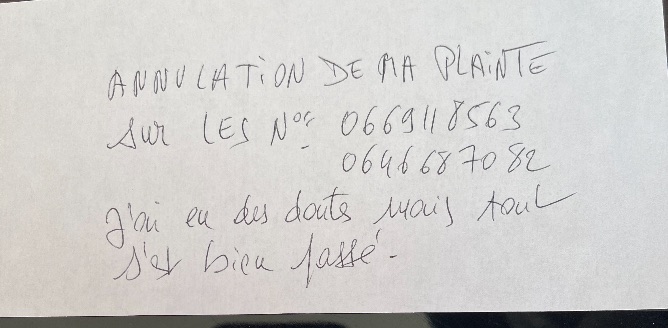 ANNULATION DE MA PLAINTE
sur LES Nos 0669118563
0646687082
j'ai eu des douts mais tout
s'est bien passé.